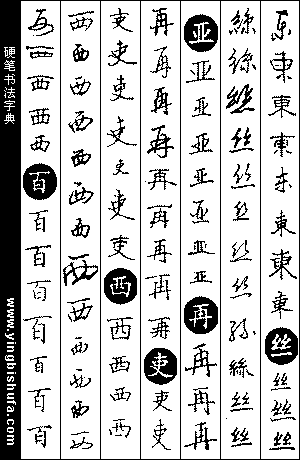 东東東東东東東東丝丝丝丝
絲絲絲丝丝丝丝丝絲絲丝丝
亚亚亚亚亚亚亚亚再再再再
再再再再再再再再再吏吏吏
吏吏吏吏吏吏吏西西西西西
西西西西西西西西西西西西西
西西西西西百百百百百百百百
硬笔书法字典 www.yingbishufa.com